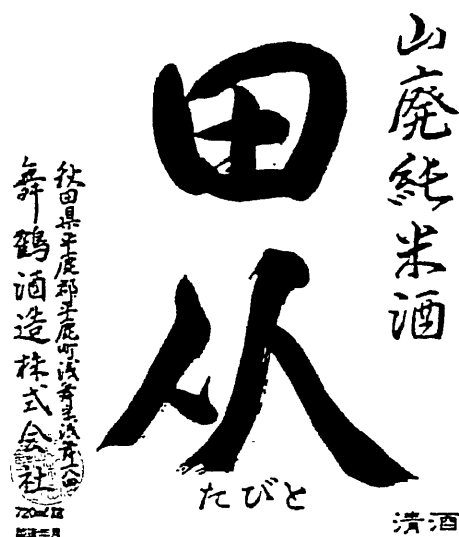 山廃純米酒
田从
たびと
秋田県平鹿郡平鹿町浅舞字浅舞一八四
舞鶴酒造株式会社
720ml詰
清酒